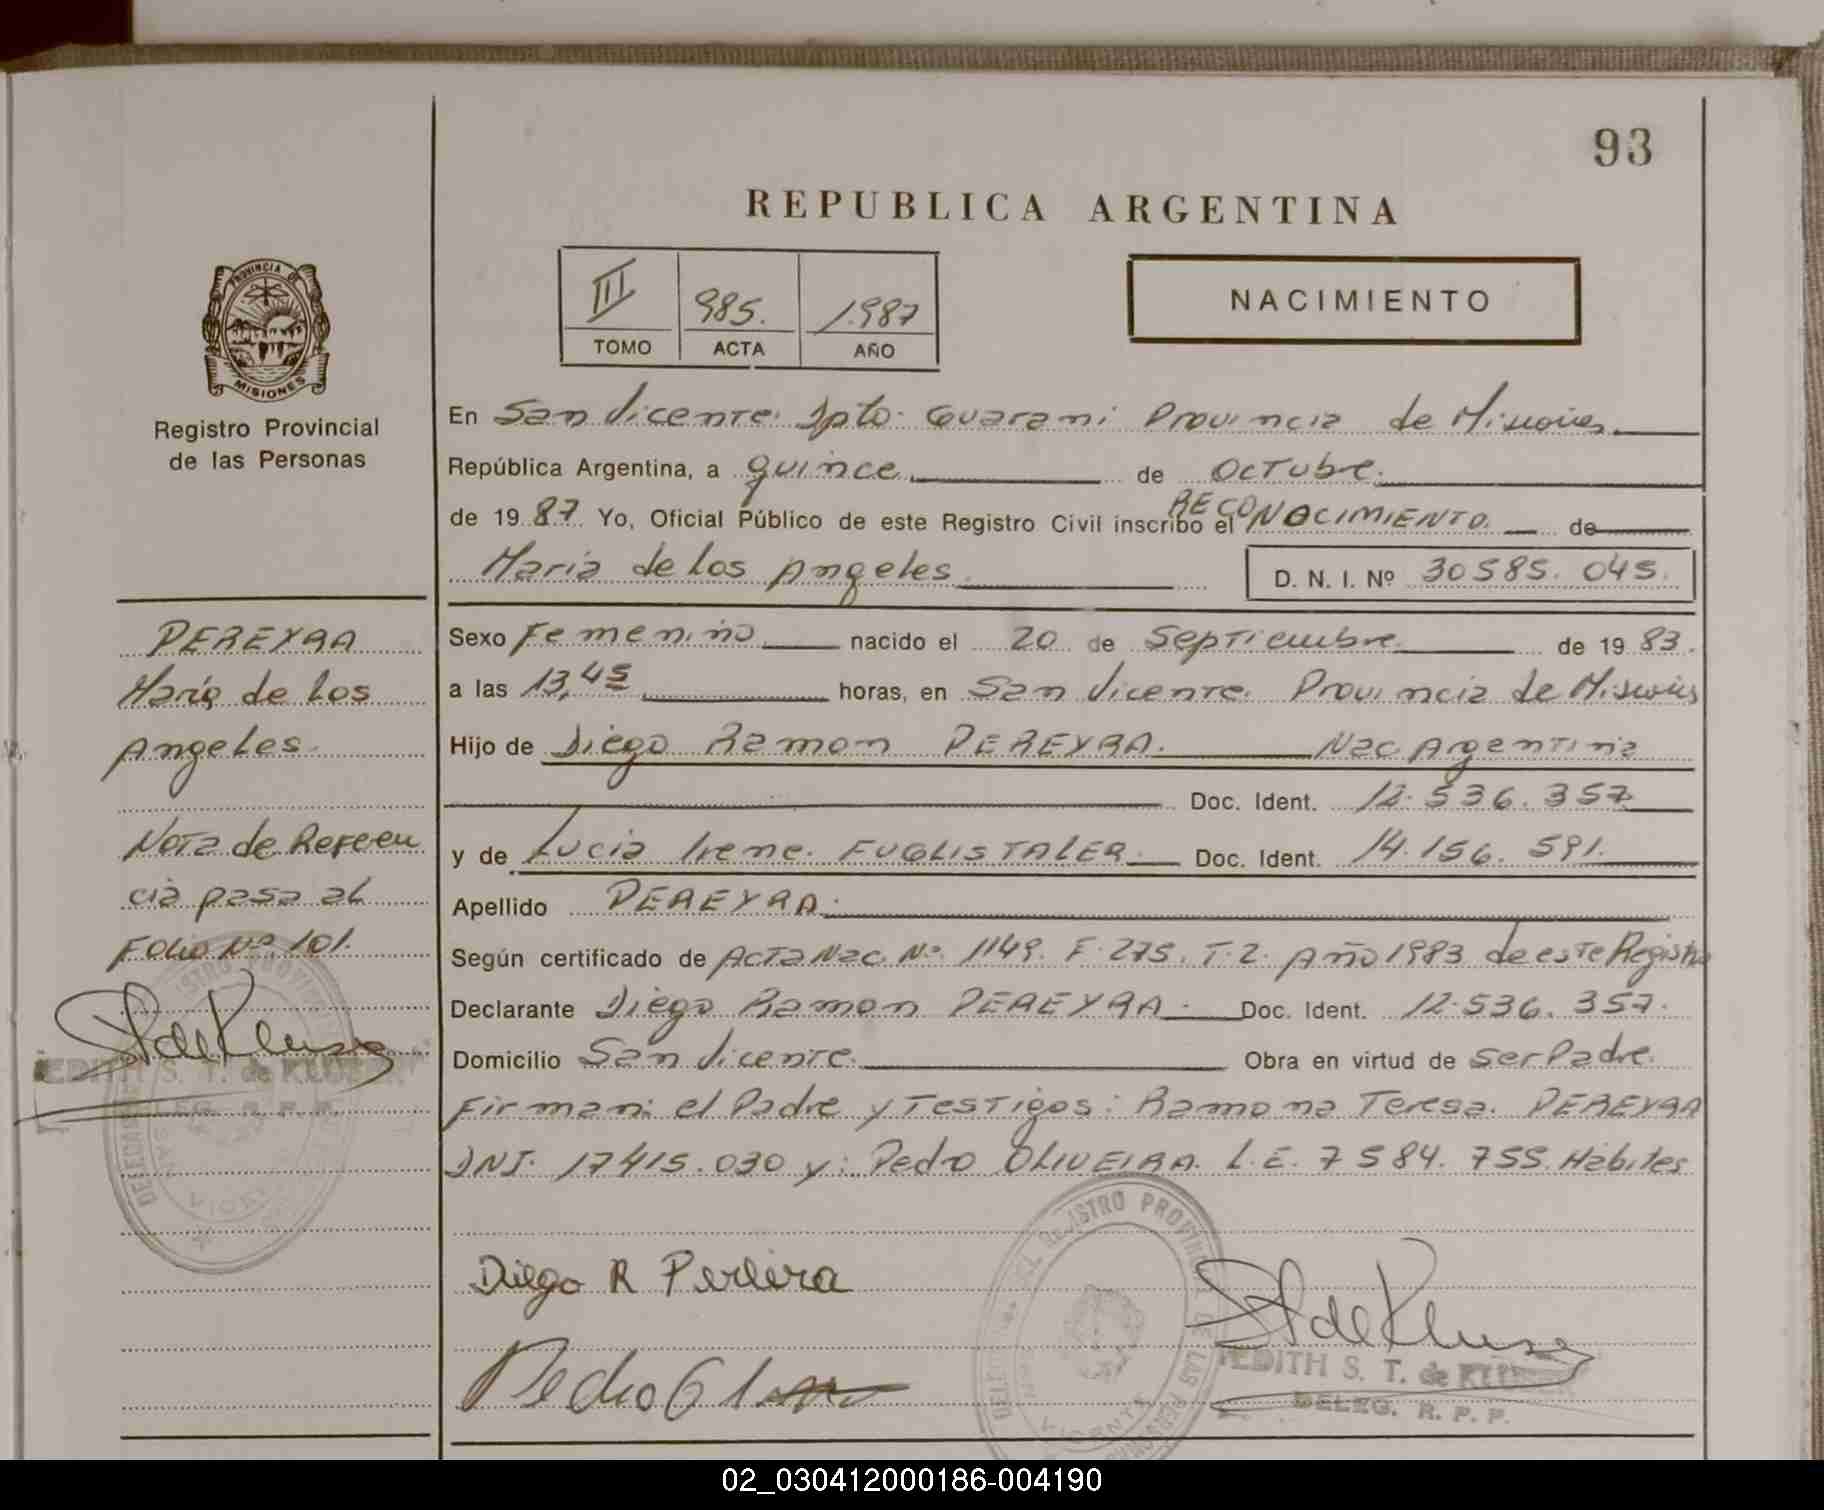 93
REPUBLICA ARGENTINA
III 985. 1.987
TOMO ACTA AÑO
NACIMIENTO
PROVINCIA DE
MISIONES
Registro Provincial
de las Personas
En San Vicente. Dpto. Guarani Provincia de Misiones
República Argentina, a quince de Octubre.
de 19 87. Yo, Oficial Público de este Registro Civil inscribo el RECONOCIMIENTO. de
Maria de los Angeles. D. N. I. Nº 30585.045.
PEREYRA
María de los
Angeles.
Nota de Referen
cia pasa al
Folio Nº 101.
EDITH S. T. de KLUSER
DELEG. R. P. P.
Sexo Femenino nacido el 20 de Septiembre de 19 83.
a las 13,45 horas, en San Vicente. Provincia de Misiones
Hijo de Diego Ramon PEREYRA. Nac Argentina
Doc. Ident. 12.536.357
y de Lucia Irene. FUGLISTALER. Doc. Ident. 14.156.591.
Apellido PEREYRA.
Según certificado de Acta Nac. Nº 1149. F.275. T.2. Año 1983 de este Registro
Declarante Diego Ramon PEREYRA. Doc. Ident. 12.536.357.
Domicilio San Vicente. Obra en virtud de ser Padre.
Firman: el Padre y Testigos: Ramona Teresa. PEREYRA
DNI. 17415.030 y: Pedro OLIVEIRA. L.E. 7584.755. Hábiles
Diego R Pereira
Pedro
EDITH S. T. de KLUSER
DELEG. R. P. P.
02_030412000186-004190